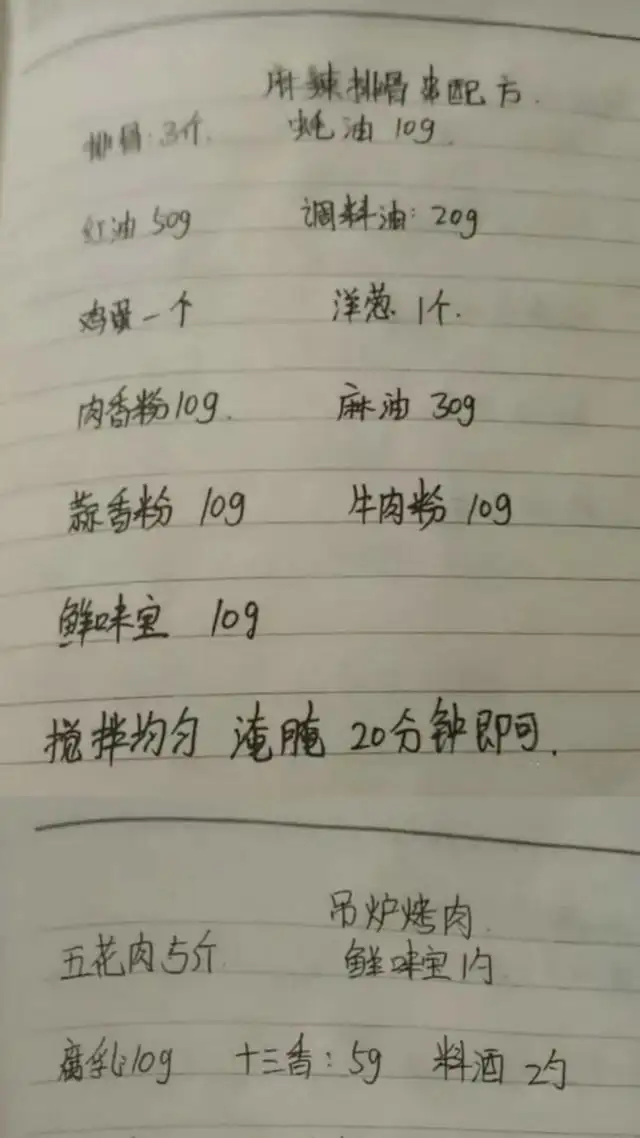 麻辣排骨串配方.
排骨:3斤. 蚝油 10g.
红油 50g 调料油: 20g
鸡蛋一个 洋葱 1个.
肉香粉10g. 麻油 30g
蒜香粉 10g 牛肉粉 10g
鲜味宝 10g
搅拌均匀 淹腌 20分钟即可.
吊炉烤肉
五花肉5斤 鲜味宝1勺
腐乳:10g 十三香: 5g 料酒 2勺